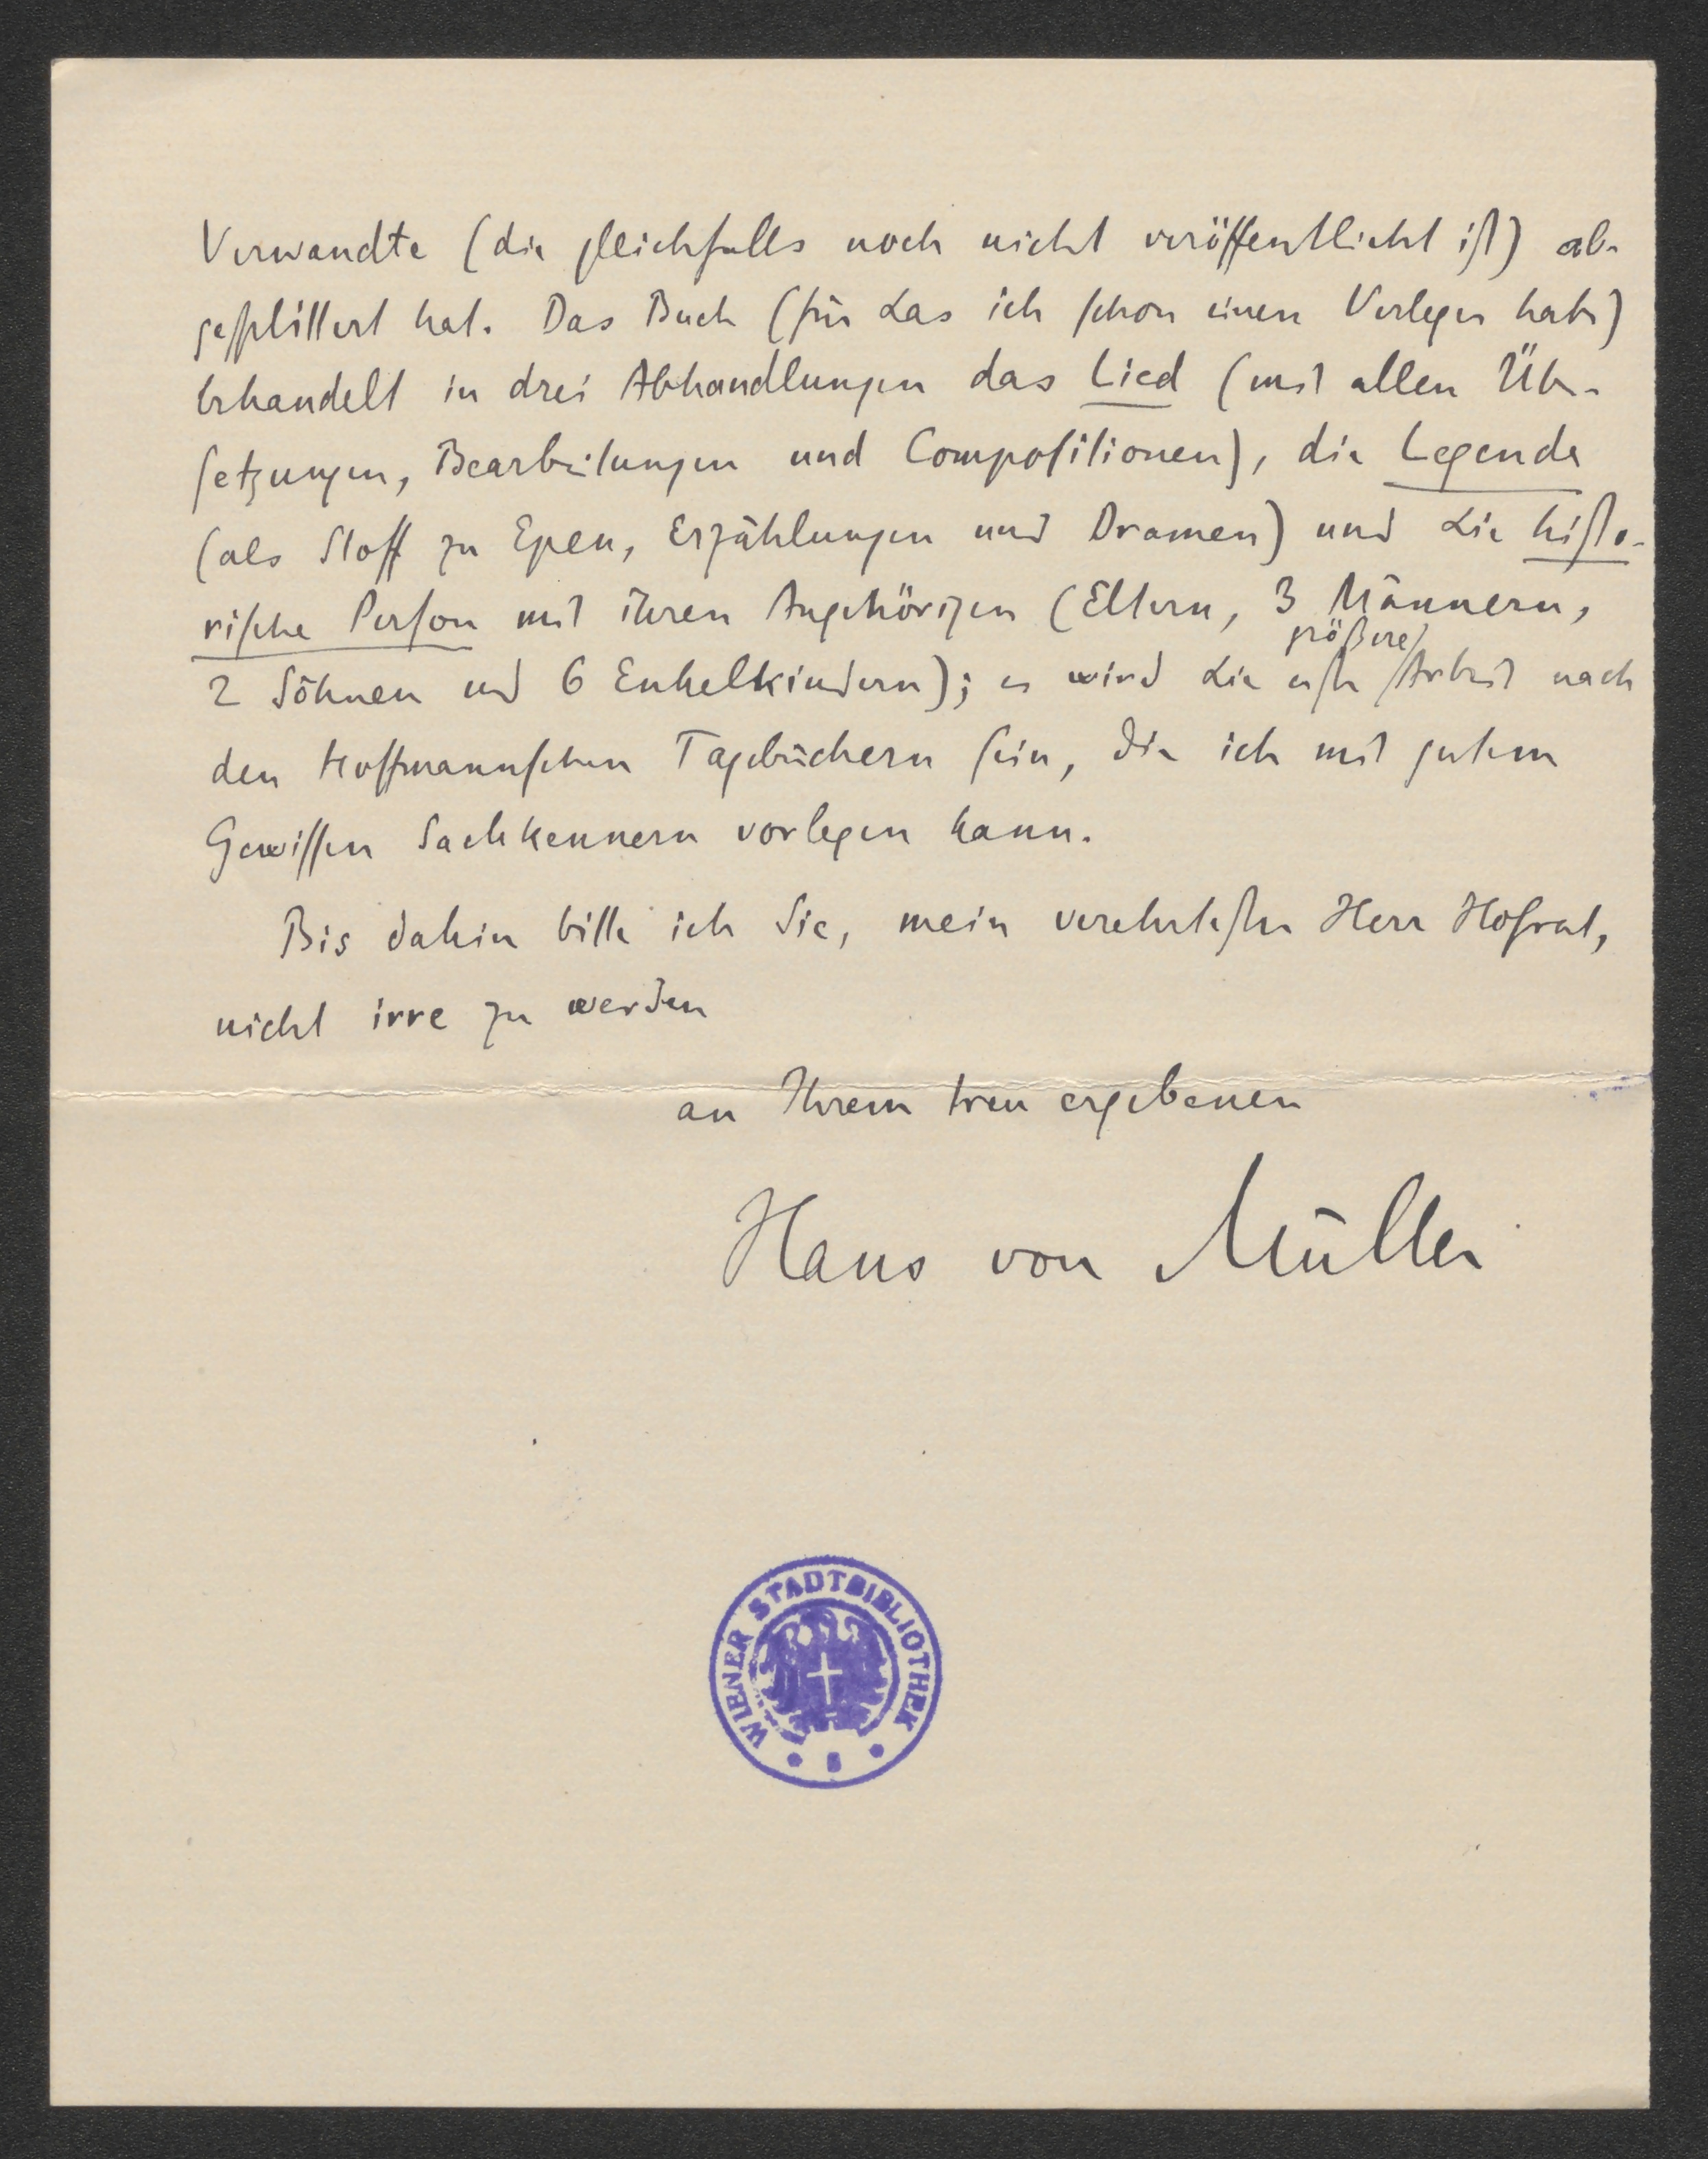 Verwandte (die gleichfalls noch nicht veröffentlicht ist) ab-
gesplittert hat. Das Buch (für das ich schon einen Verleger habe)
behandelt in drei Abhandlungen das Lied (mit allen Über-
setzungen, Bearbeitungen und Compositionen), die Legende
(als Stoff zu Epen, Erzählungen und Dramen) und die histo-
rische Person mit ihren Angehörigen (Eltern, 3 Männern,
größere
2 Söhnen und 6 Enkelkindern); es wird die erste Arbeit nach
den Hoffmannschen Tagebüchern sein, die ich mit gutem
Gewissen Sachkennern vorlegen kann.
Bis dahin bitte ich Sie, mein verehrtester Herr Hofrat,
nicht irre zu werden
an Ihrem treu ergebenen
Hans von Müller
WIENER STADTBIBLIOTHEK